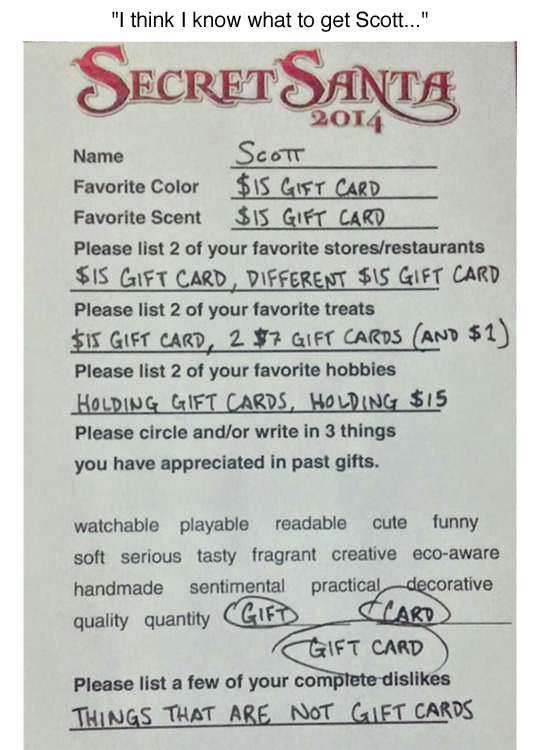 "I think I know what to get Scott..."
SECRET SANTA
2014
Name SCOTT
Favorite Color $15 GIFT CARD
Favorite Scent $15 GIFT CARD
Please list 2 of your favorite stores/restaurants
$15 GIFT CARD, DIFFERENT $15 GIFT CARD
Please list 2 of your favorite treats
$15 GIFT CARD, 2 $7 GIFT CARDS (AND $1)
Please list 2 of your favorite hobbies
HOLDING GIFT CARDS, HOLDING $15
Please circle and/or write in 3 things
you have appreciated in past gifts.
watchable playable readable cute funny
soft serious tasty fragrant creative eco-aware
handmade sentimental practical decorative
quality quantity GIFT CARD
GIFT CARD
Please list a few of your complete dislikes
THINGS THAT ARE NOT GIFT CARDS